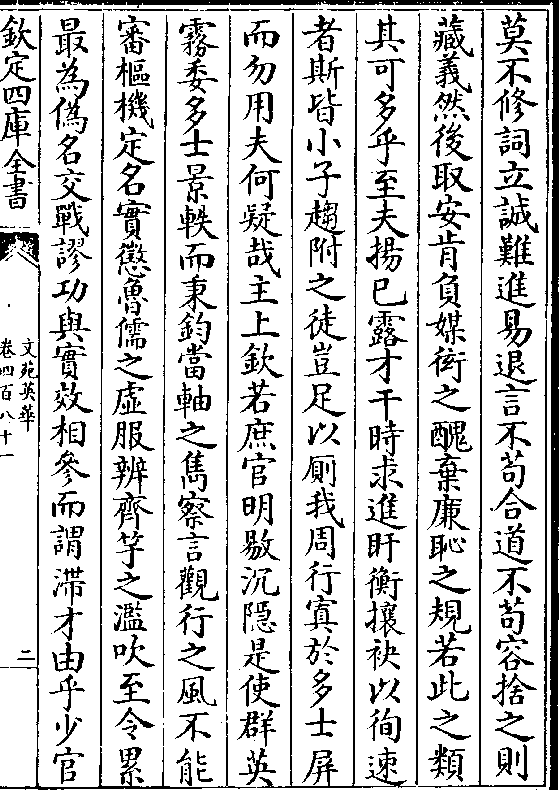 莫不修詞立誠難進易退言不苟合道不苟容捨之則
藏義然後取安肯負媒衒之醜棄廉恥之規若此之類
其可多乎至夫揚已露才干時求進盱衡攘袂以徇速
者斯皆小子趨附之徒豈足以厠我周行寘於多士屏
而勿用夫何疑哉主上欽若庶官明敭沉隠是使群英
霧委多士景軼而秉鈞當軸之雋察言觀行之風不能
審樞機定名實懲魯儒之虛服辨齊竽之濫吹至令累
最為偽名交戰謬功與實效相參而謂滯才由乎少官
欽定四庫全書
文苑英華
卷四百八十一
二